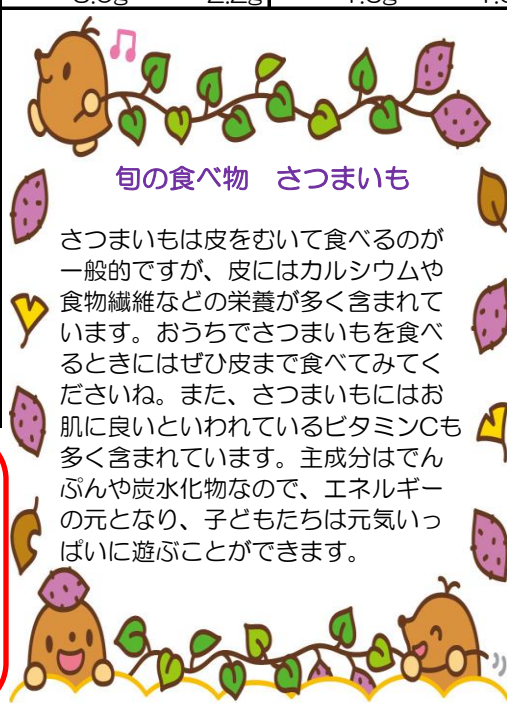 旬の食べ物　さつまいも
さつまいもは皮をむいて食べるのが
一般的ですが、皮にはカルシウムや
食物繊維などの栄養が多く含まれて
います。おうちでさつまいもを食べ
るときにはぜひ皮まで食べてみてく
ださいね。また、さつまいもにはお
肌に良いといわれているビタミンCも
多く含まれています。主成分はでん
ぷんや炭水化物なので、エネルギー
の元となり、子どもたちは元気いっ
ぱいに遊ぶことができます。